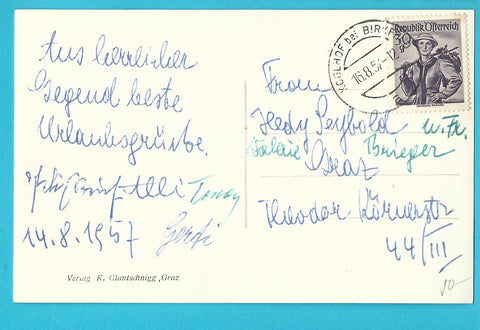 Aus herrlicher
Gegend beste
Urlaubsgrüsse.
Alli Tonny
14.8.1957 Gerti
Verlag K. Glantschnigg, Graz
KOGLHOF bei BIRKF
16.8.57-12
Republik Österreich
Frau
Hedy Seybold u. Fr.
Brieger
Graz
Theodor Körnerstr
44/III
10-